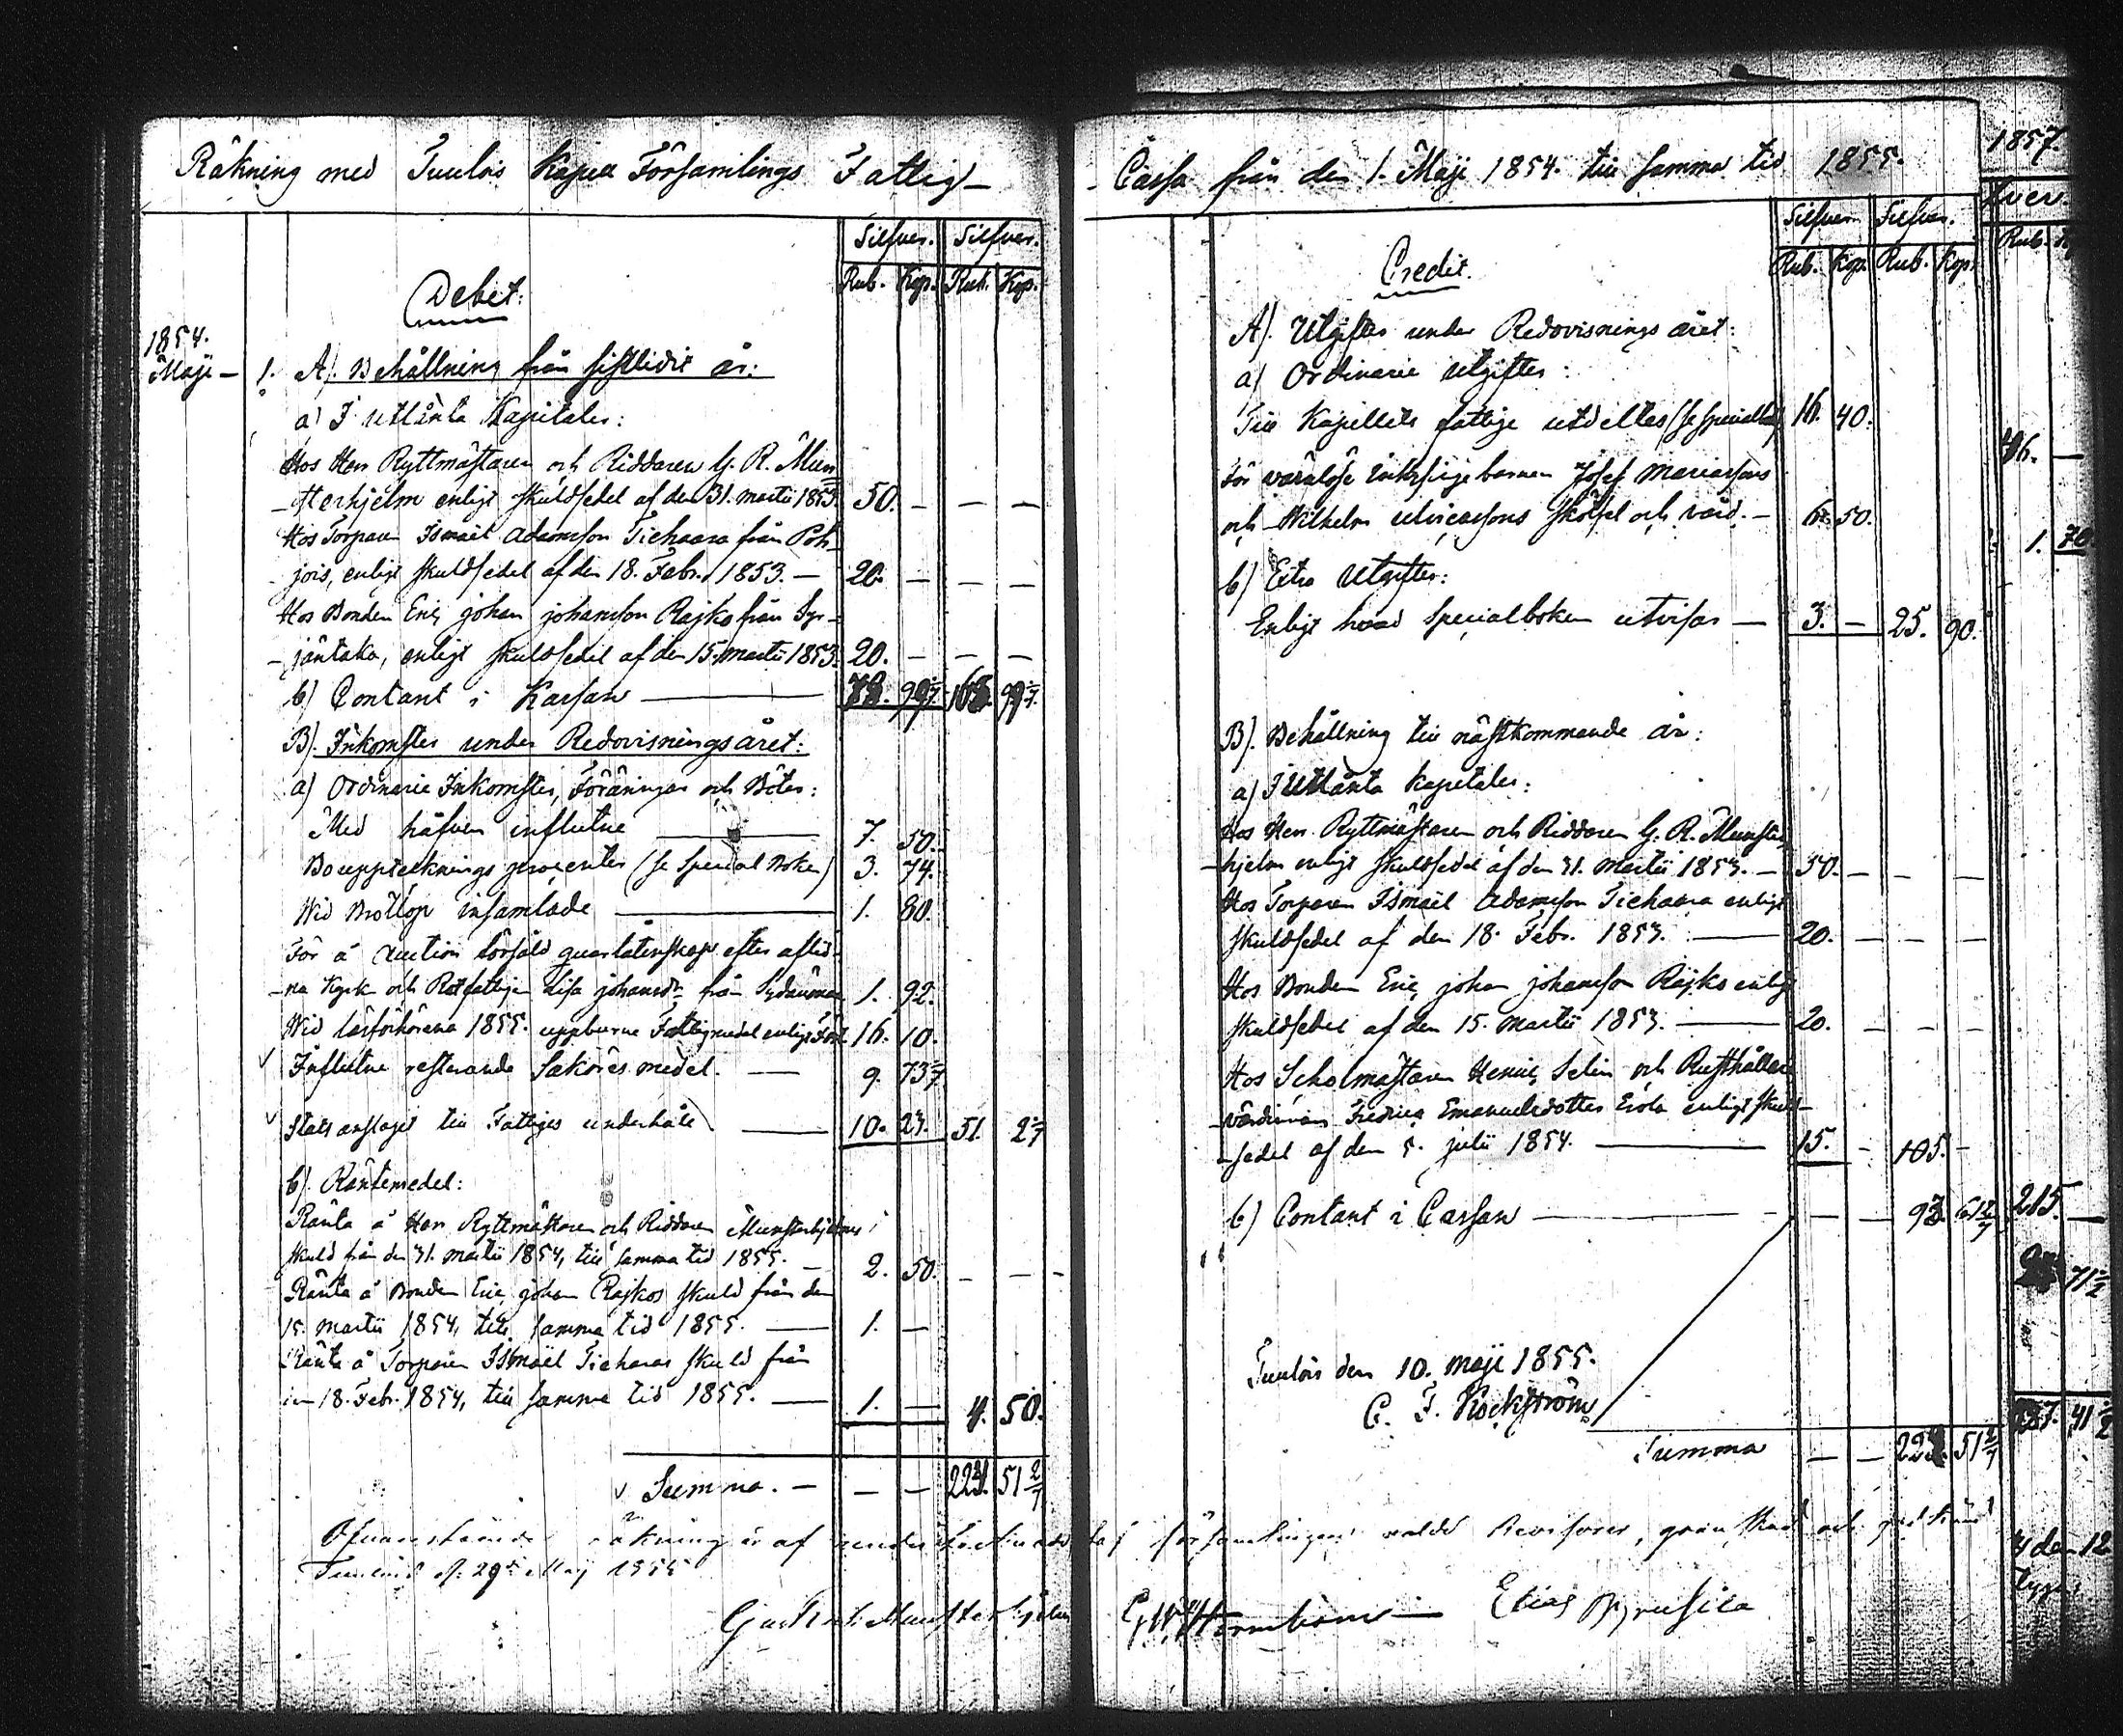 Räkning med Tuulois Kapell Församlings Fattig-
Silfver. Silfver.
Debet: Rub. Kop. Rub. Kop.
1854.
Maji - 1. A). Behållning från sistlidit år:
a) I utlånta Kapitaler:
Hos Herr Ryttmästaren och Riddaren G. R. Mun
-sterhjelm enligt skuldsedel af den 31. Martii 1853. 50. - - -
Hos Torparen Ismaël Adamsson Tiehaara från Poh-
jois, enligt skuldsedel af den 18. Febr. 1853. - 20. - - -
Hos Bonden Eric Johan Johansson Rajko från Syr-
-jäntaka, enligt skuldsedel af den 15. Martii 1853. 20. - - -
b) Contant i Kassan
B). Inkomster under Redovisningsåret:
a) Ordinarie Inkomster, Föräningar och Böter:
Med håfven influtne 7. 50.
Bouppteknings procenter (se Special Boken) 3. 74.
Wid Bröllop insamlade 1. 80.
För å Auction försåld quarlåtenskap efter aflid-
-na Kyrk och Rotfattigen Lisa Johansdr från 1. 92.
Wid läsförhören 1855. uppburne Fattigmedel enligt 16. 10.
Influtne resterande Saköres medel. - 9. 73 2/7
Stats anslaget till Fattiges underhåll 10. 23. 51. 2 2/7
b). Räntemedel:
Ränta å Herr Ryttmästaren och Riddaren Munsterhjelms
skuld från den 31. Martii 1854, till samma tid 1855. - 2. 50. - -
Ränta å Bonden Eric Johan Rajkos skuld från den
15. Martii 1854, till samma tid 1855. - 1. -
Ränta å Torparen Ismaël Tieharas skuld från
den 18. Febr. 1854, till samma tid 1855. - 1. - 4. 50.
Summa. - - - 51 2/7
Ofvanstående räkning är af undertecknade
den 29de Maj 1855
Gust. Munsterhjelm
- Cassa från den 1. Maji 1854. till samma tid 1855.
Silfver. Silfver.
Credit. Rub. Kop. Rub. Kop.
A). Utgifter under Redovisnings året:
a) Ordinarie utgifter:
Till Kapellets fattige utdeltes (se Specialboken) 16. 40.
För värnlöse barnen Josef Mariassons
och Wilhelm Ulricassons skötsel och vård. - 6. 50.
b) Extra Utgifter:
Enligt hvad Specialboken utvisar - 3. - 25. 90.
B). Behållning till nästkommande år:
a) I Utlånta Kapitaler:
Hos Herr Ryttmästaren och Riddaren G. R. Munster-
-hjelm enligt skuldsedel af den 31. Martii 1853. - 50. - - -
Hos Torparen Ismaël Adamsson Tiehaara enligt
skuldsedel af den 18. Febr. 1853. 20. - - -
Hos Bonden Eric Johan Johansson Rajko enligt
skuldsedel af den 15. Martii 1853. 20. - - -
Hos Scholmästaren Henric Selin och Rusthållare
värdinnan Fredrica Emanuelsdotter Erola enligt skuld-
-sedel af den 5. Julii 1854. 15. - 105. -
b) Contant i Cassan - - 93. 61 2/7
Tuulois den 10. Maji 1855.
C. F. Rockström
Summa - - 51 2/7
församlingen valde Revisorer, granskad och godkänd
Elias Pyrusila
1857.
Rub.
1. 70
215. -
71 1/2
41 1/2
den 12